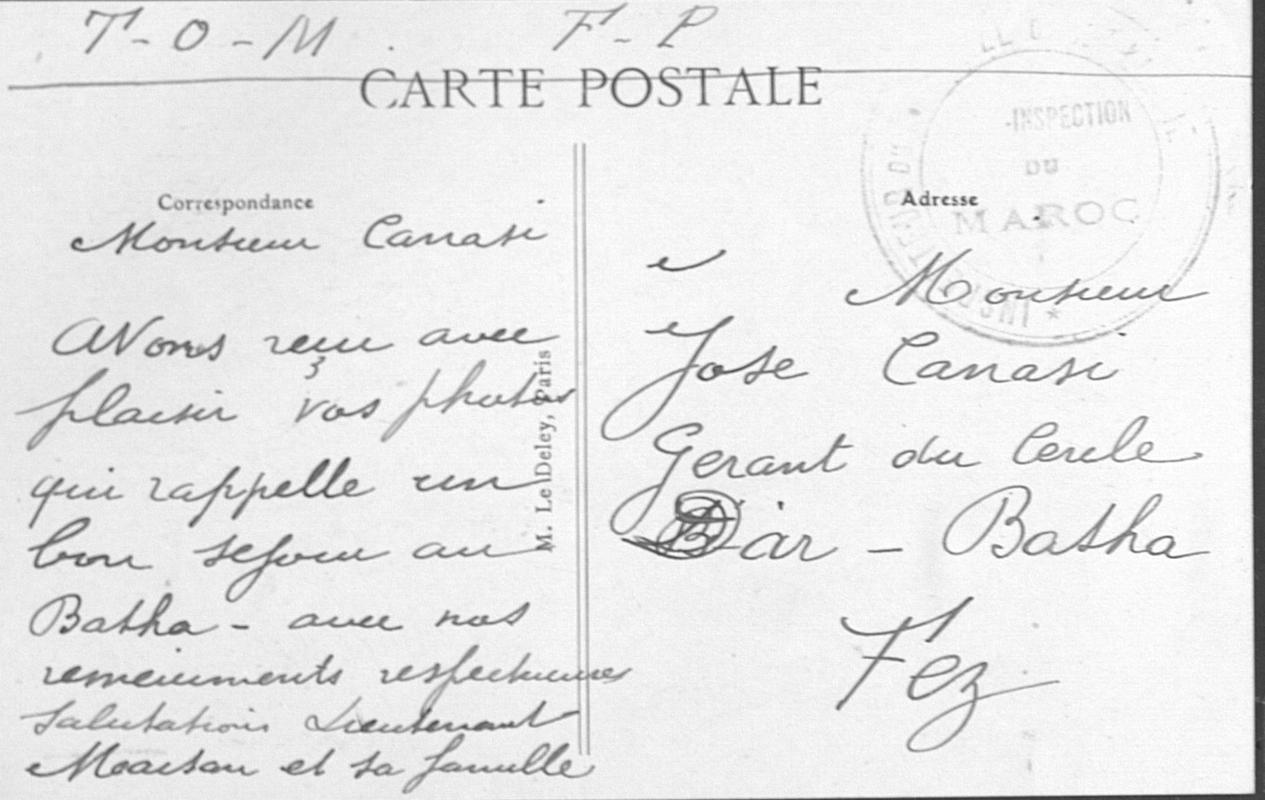 T-O-M. F-P
CARTE POSTALE
Correspondance
Monsieur Canasi
AVons reçu avec
plaisir vos photos
qui rappelle un
bon sejour au
Batha - avec nos
remerciements respectueuses
Salutations Lieutenant
et sa famille
M. Le Deley, Paris
INSPECTION
DU
MAROC
Adresse
Monsieur
Jose Canasi
Gerant du Cercle
Dar - Batha
Fez